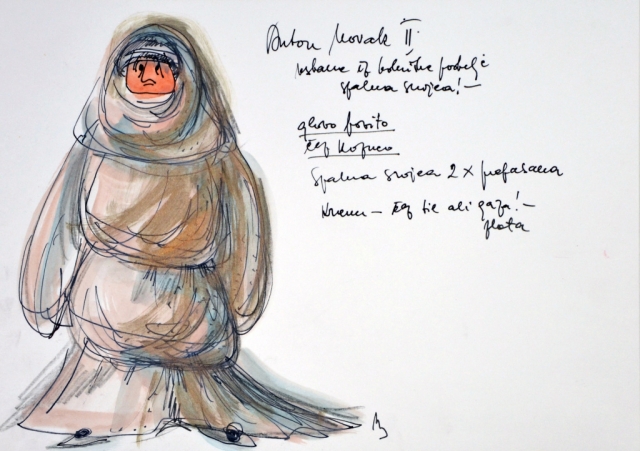 Anton Novak II.
vstane iz bolniške postelje
spalna srajca! —
glavo povito
čez kapuco
Spalna srajca 2 x prepasana
čez til ali gaza! —